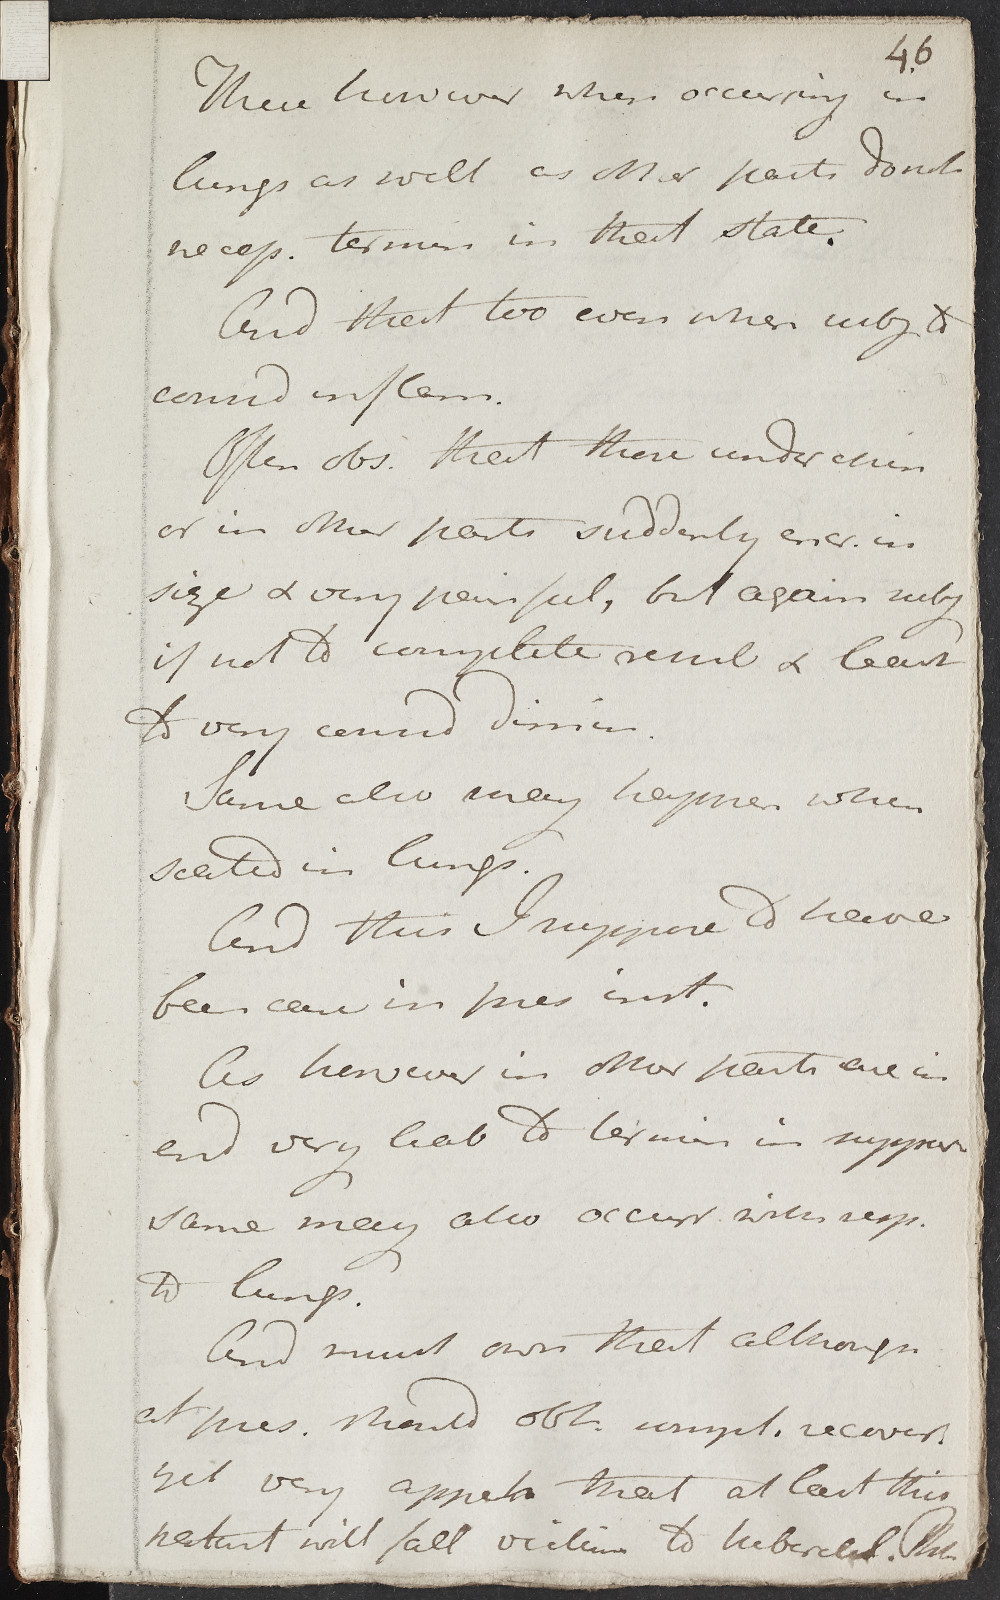 46
These however when occurring in
lungs as well as other parts do not
necess. termin in that state.
And that too even when subj to
consid inflam.
Often obs. that those under chin
or in other parts suddenly encr. in
size & very painful, but again subj
if not to complete resol & least
to very consid dimin.
Same also may happen when
seated in lungs.
And this I suppose to have
been case in pres inst.
As however in other parts are in
end very liab to termin in suppur
same may also occur with resp.
to lungs.
And must own that although
at pres. should obt. compl. recover.
yet very appreh that at last this
patient will fall victim to tubercul. Pht